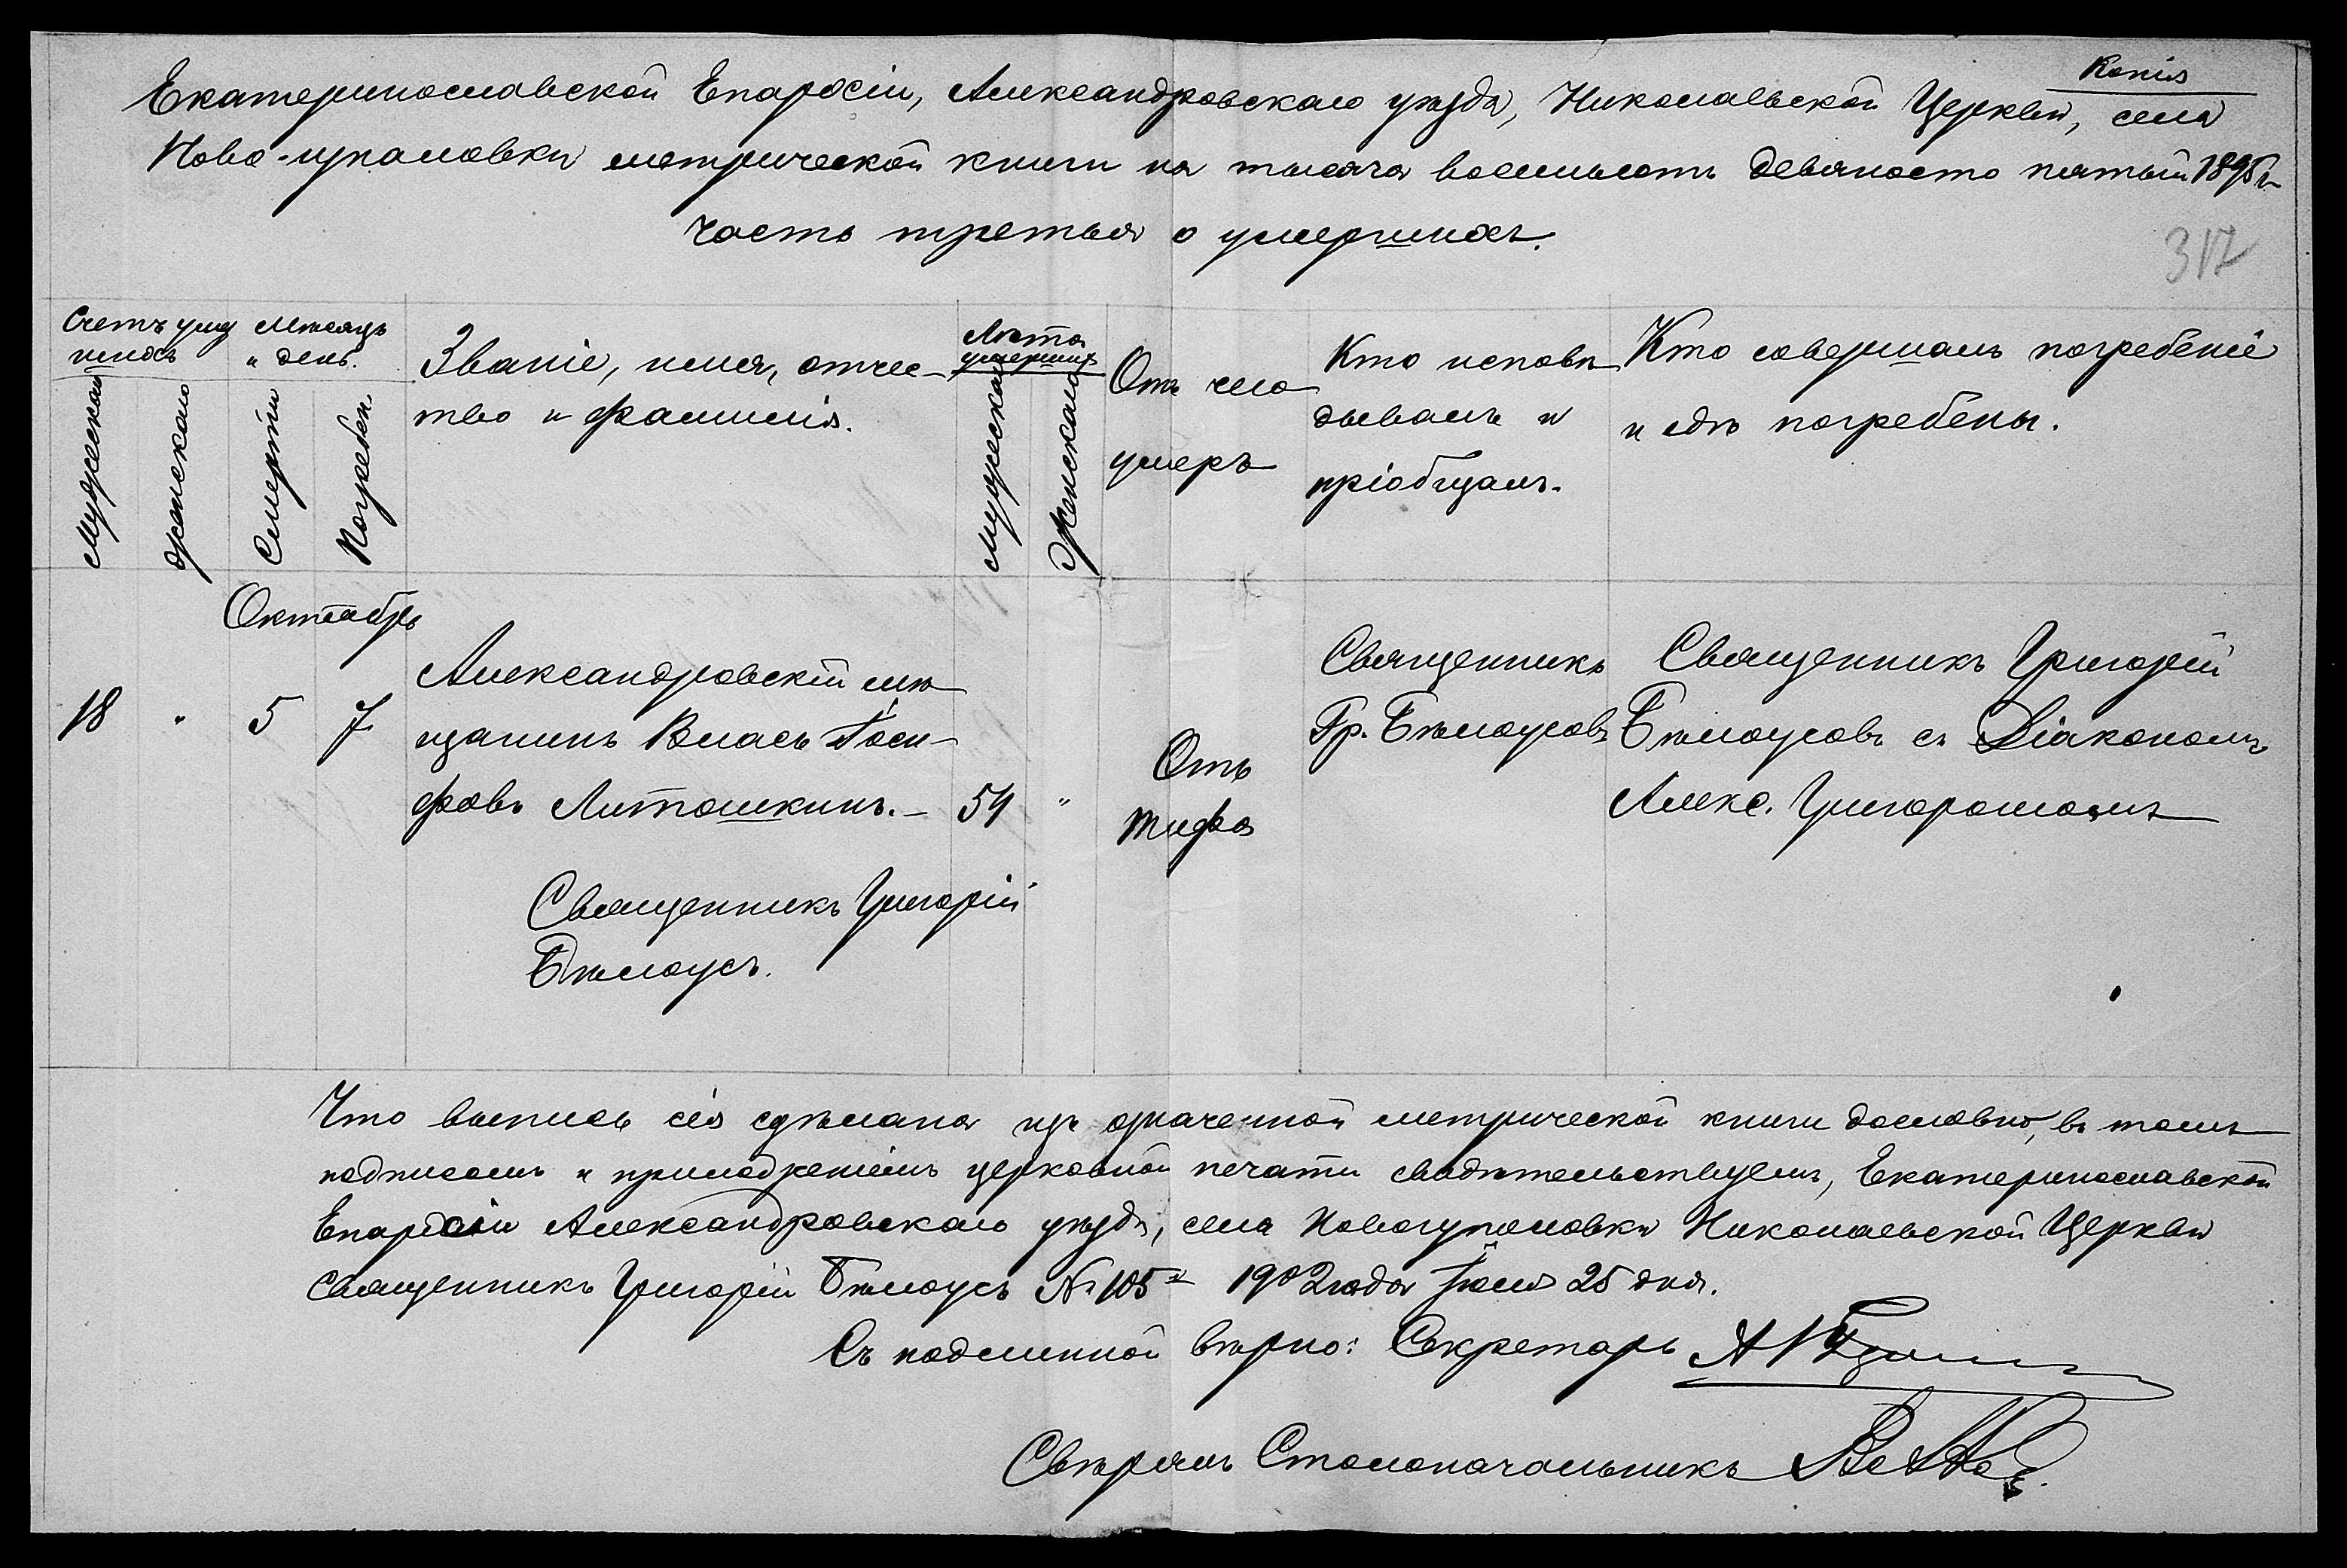 Копія
Екатеринославской Епархіи, Александровскаго уѣзда, Николаевской Церкви, села
Ново-гупаловки метрической книги на тысяча восемьсотъ девяносто пятый 1895 г.
часть третья о умершихъ.
317
Счетъ умер
шихъ
Мѣсяцъ
и день.
Званіе, имя, отчес-
тво и фамилія.
Лѣта
умершихъ
Отъ чего
умеръ
Кто исповѣ
дывалъ и
пріобщалъ.
Кто совершалъ погребеніе
и гдѣ погребены.
Мужескаго
Женскаго
Смерти
Погребен.
Мужескаго
Женскаго
Октябрь
18 " 5 7
Александровскій мѣ
щанинъ Власъ Іоси-
фовъ Литошкинъ.-
54 "
Отъ
тифа
Священникъ
Гр. Бѣлоусовъ
Священникъ Григорій
Бѣлоусовъ съ Діакономъ
Алекс.
Священникъ Григорій
Бѣлоусъ.
Что выпись сія сдѣлана изъ означенной метрической книги дословно, въ томъ
подписомъ и приложеніемъ церковной печати свидѣтельствуемъ, Екатеринославской
Епархіи Александровскаго уѣзда, села Новогупаловки Николаевской Церкви
Священникъ Григорій Бѣлоусъ № 105 1902 года Іюля 25 дня.
Съ подлинной вѣрно: Секретарь
Свѣрялъ Столоначальникъ